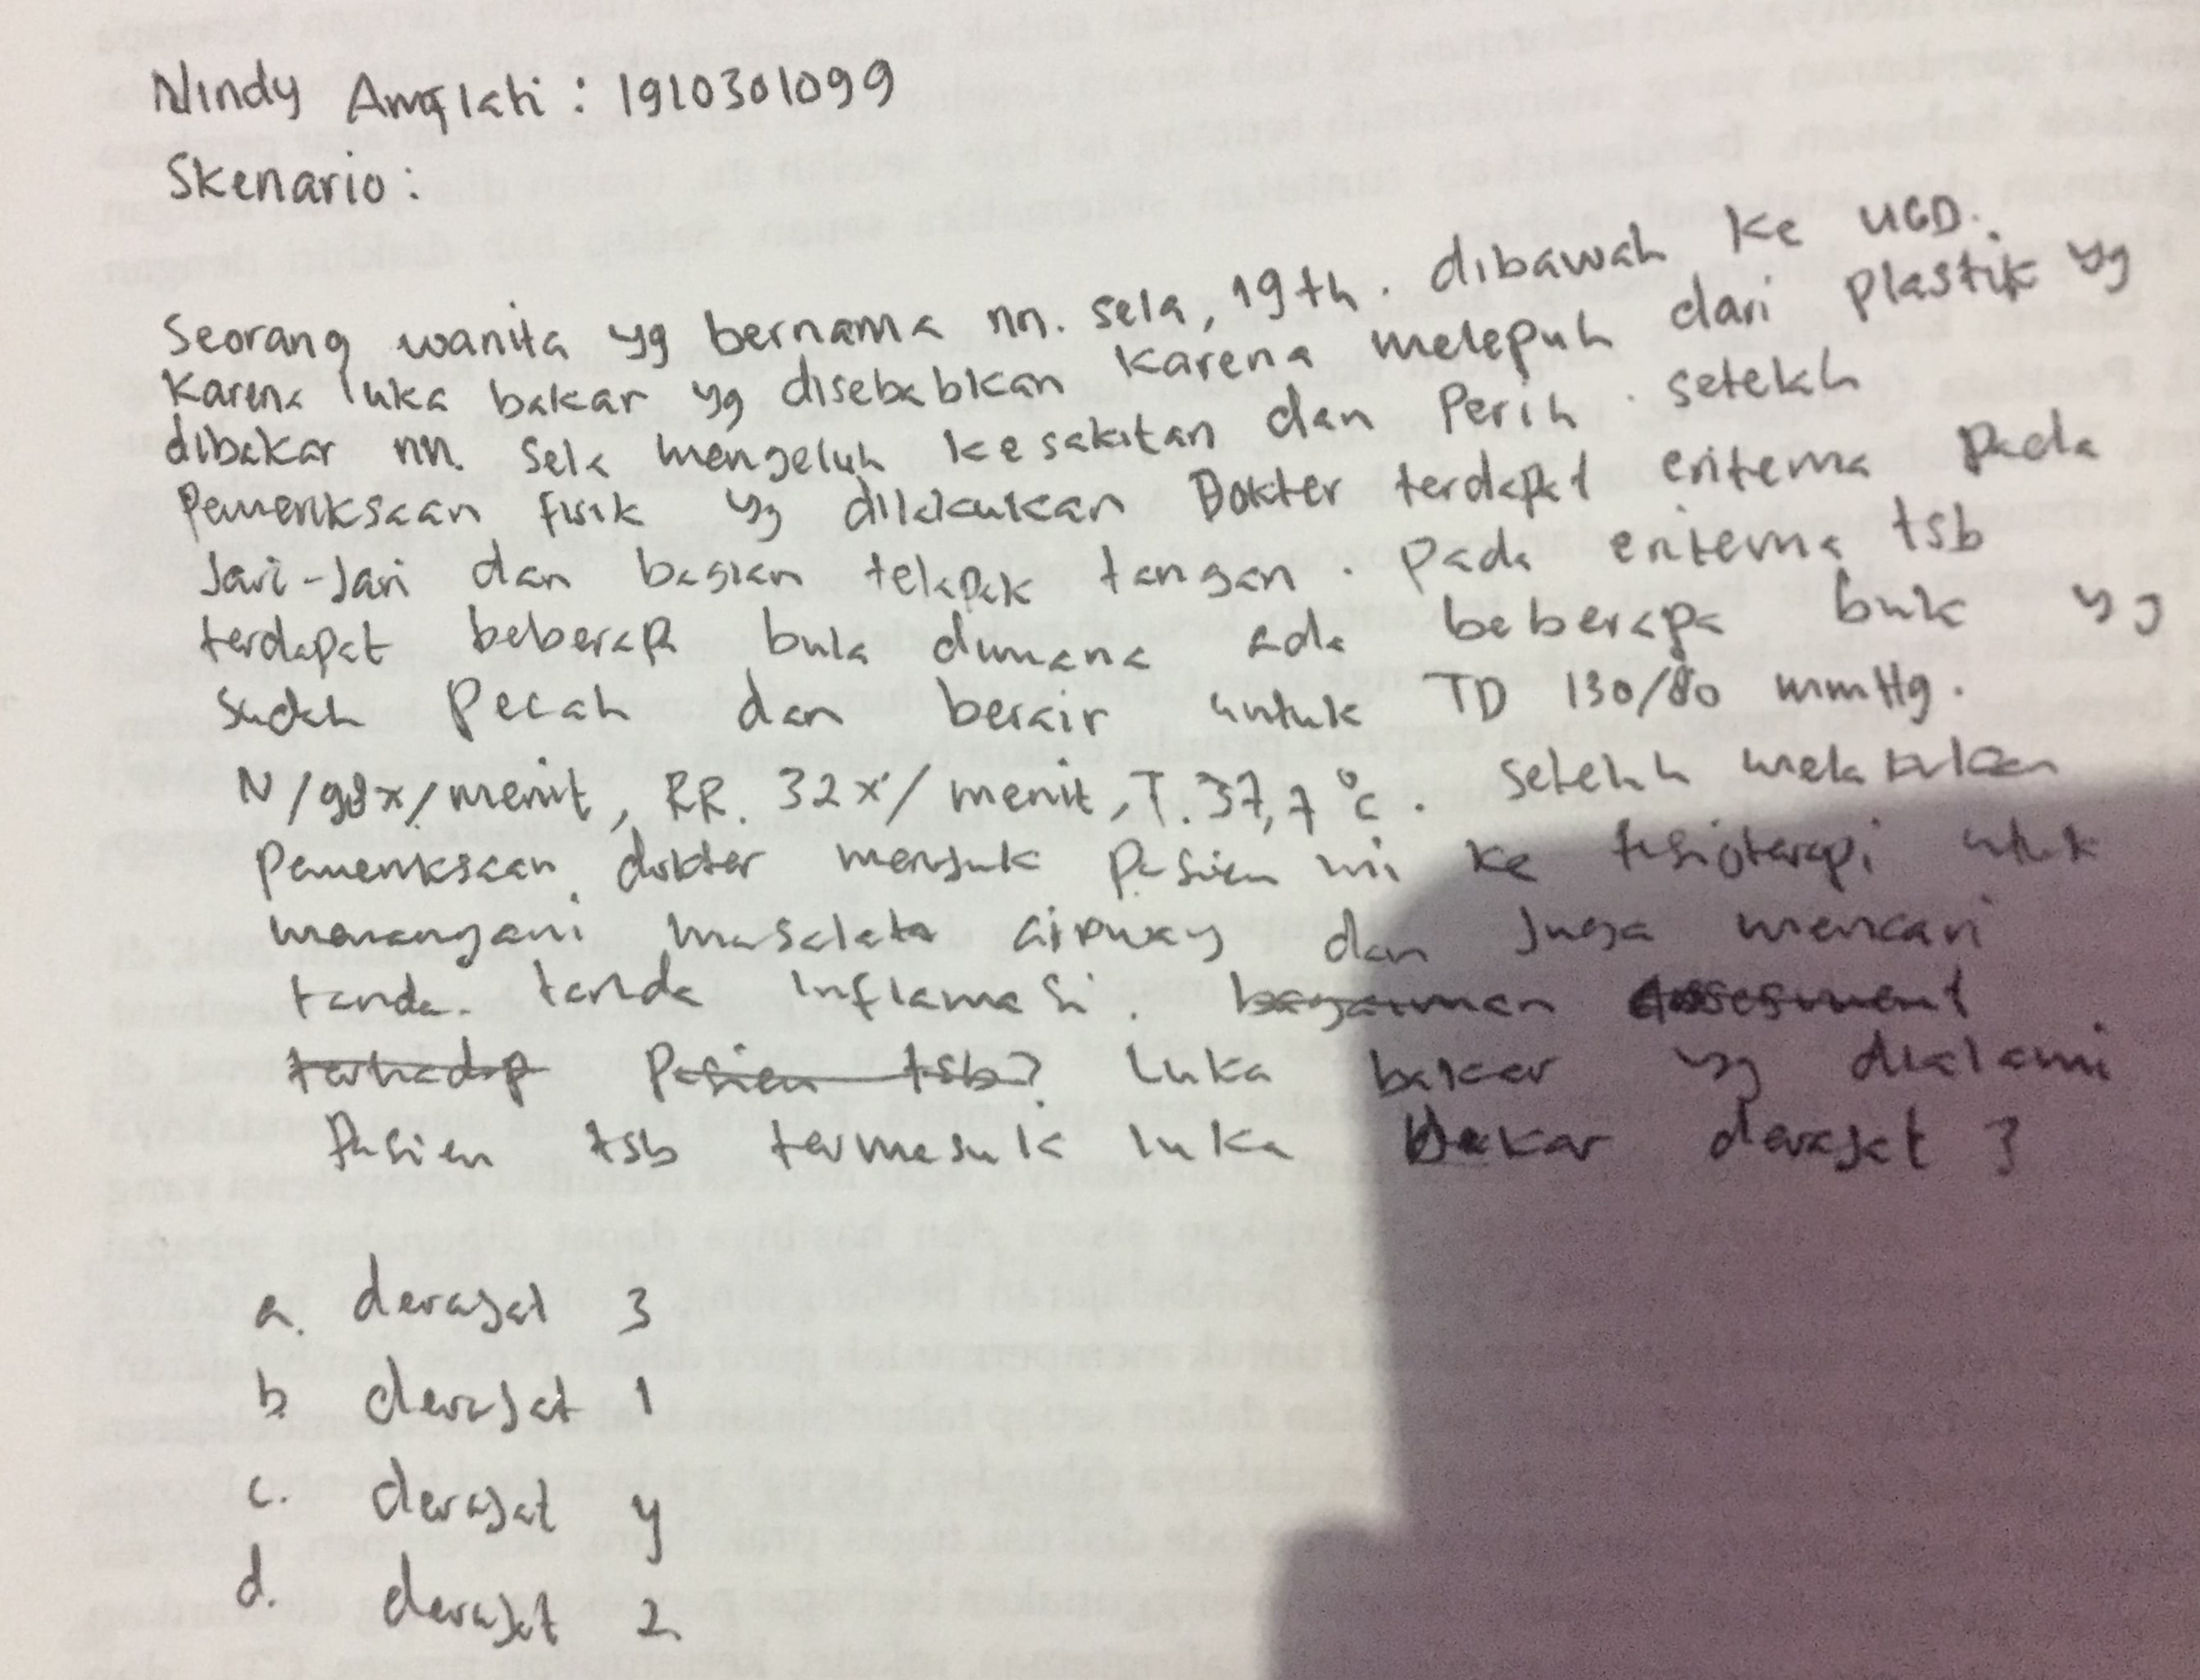 Nindy Anglati : 1910301099
Skenario :
Seorang wanita yg bernama nn. sela, 19th. dibawah ke UGD.
Karena luka bakar yg disebabkan karena melepuh dari plastik yg
dibakar nn. Sela mengeluh kesakitan dan Perih. setelah
Pemeriksaan fisik yg dilakukan Dokter terdapat eritema pada
Jari-Jari dan bagian telapak tangan. Pada eritema tsb
terdapat beberapa bula dimana ada beberapa bula yg
sudah Pecah dan berair untuk TD 130/80 mmHg.
N/98x/menit, RR. 32x/menit, T. 37,7 °c. Setelah melakukan
Pemeriksaan, dokter merujuk Pasien ini ke fisioterapi untuk
menangani masalah airway dan Juga mencari
tanda-tanda Inflamasi. bagaiman assesment
terhadap Pasien tsb? luka bakar yg dialami
Pasien tsb termasuk luka bakar derajat 3
a. derajat 3
b. derajat 1
c. derajat 4
d. derajat 2